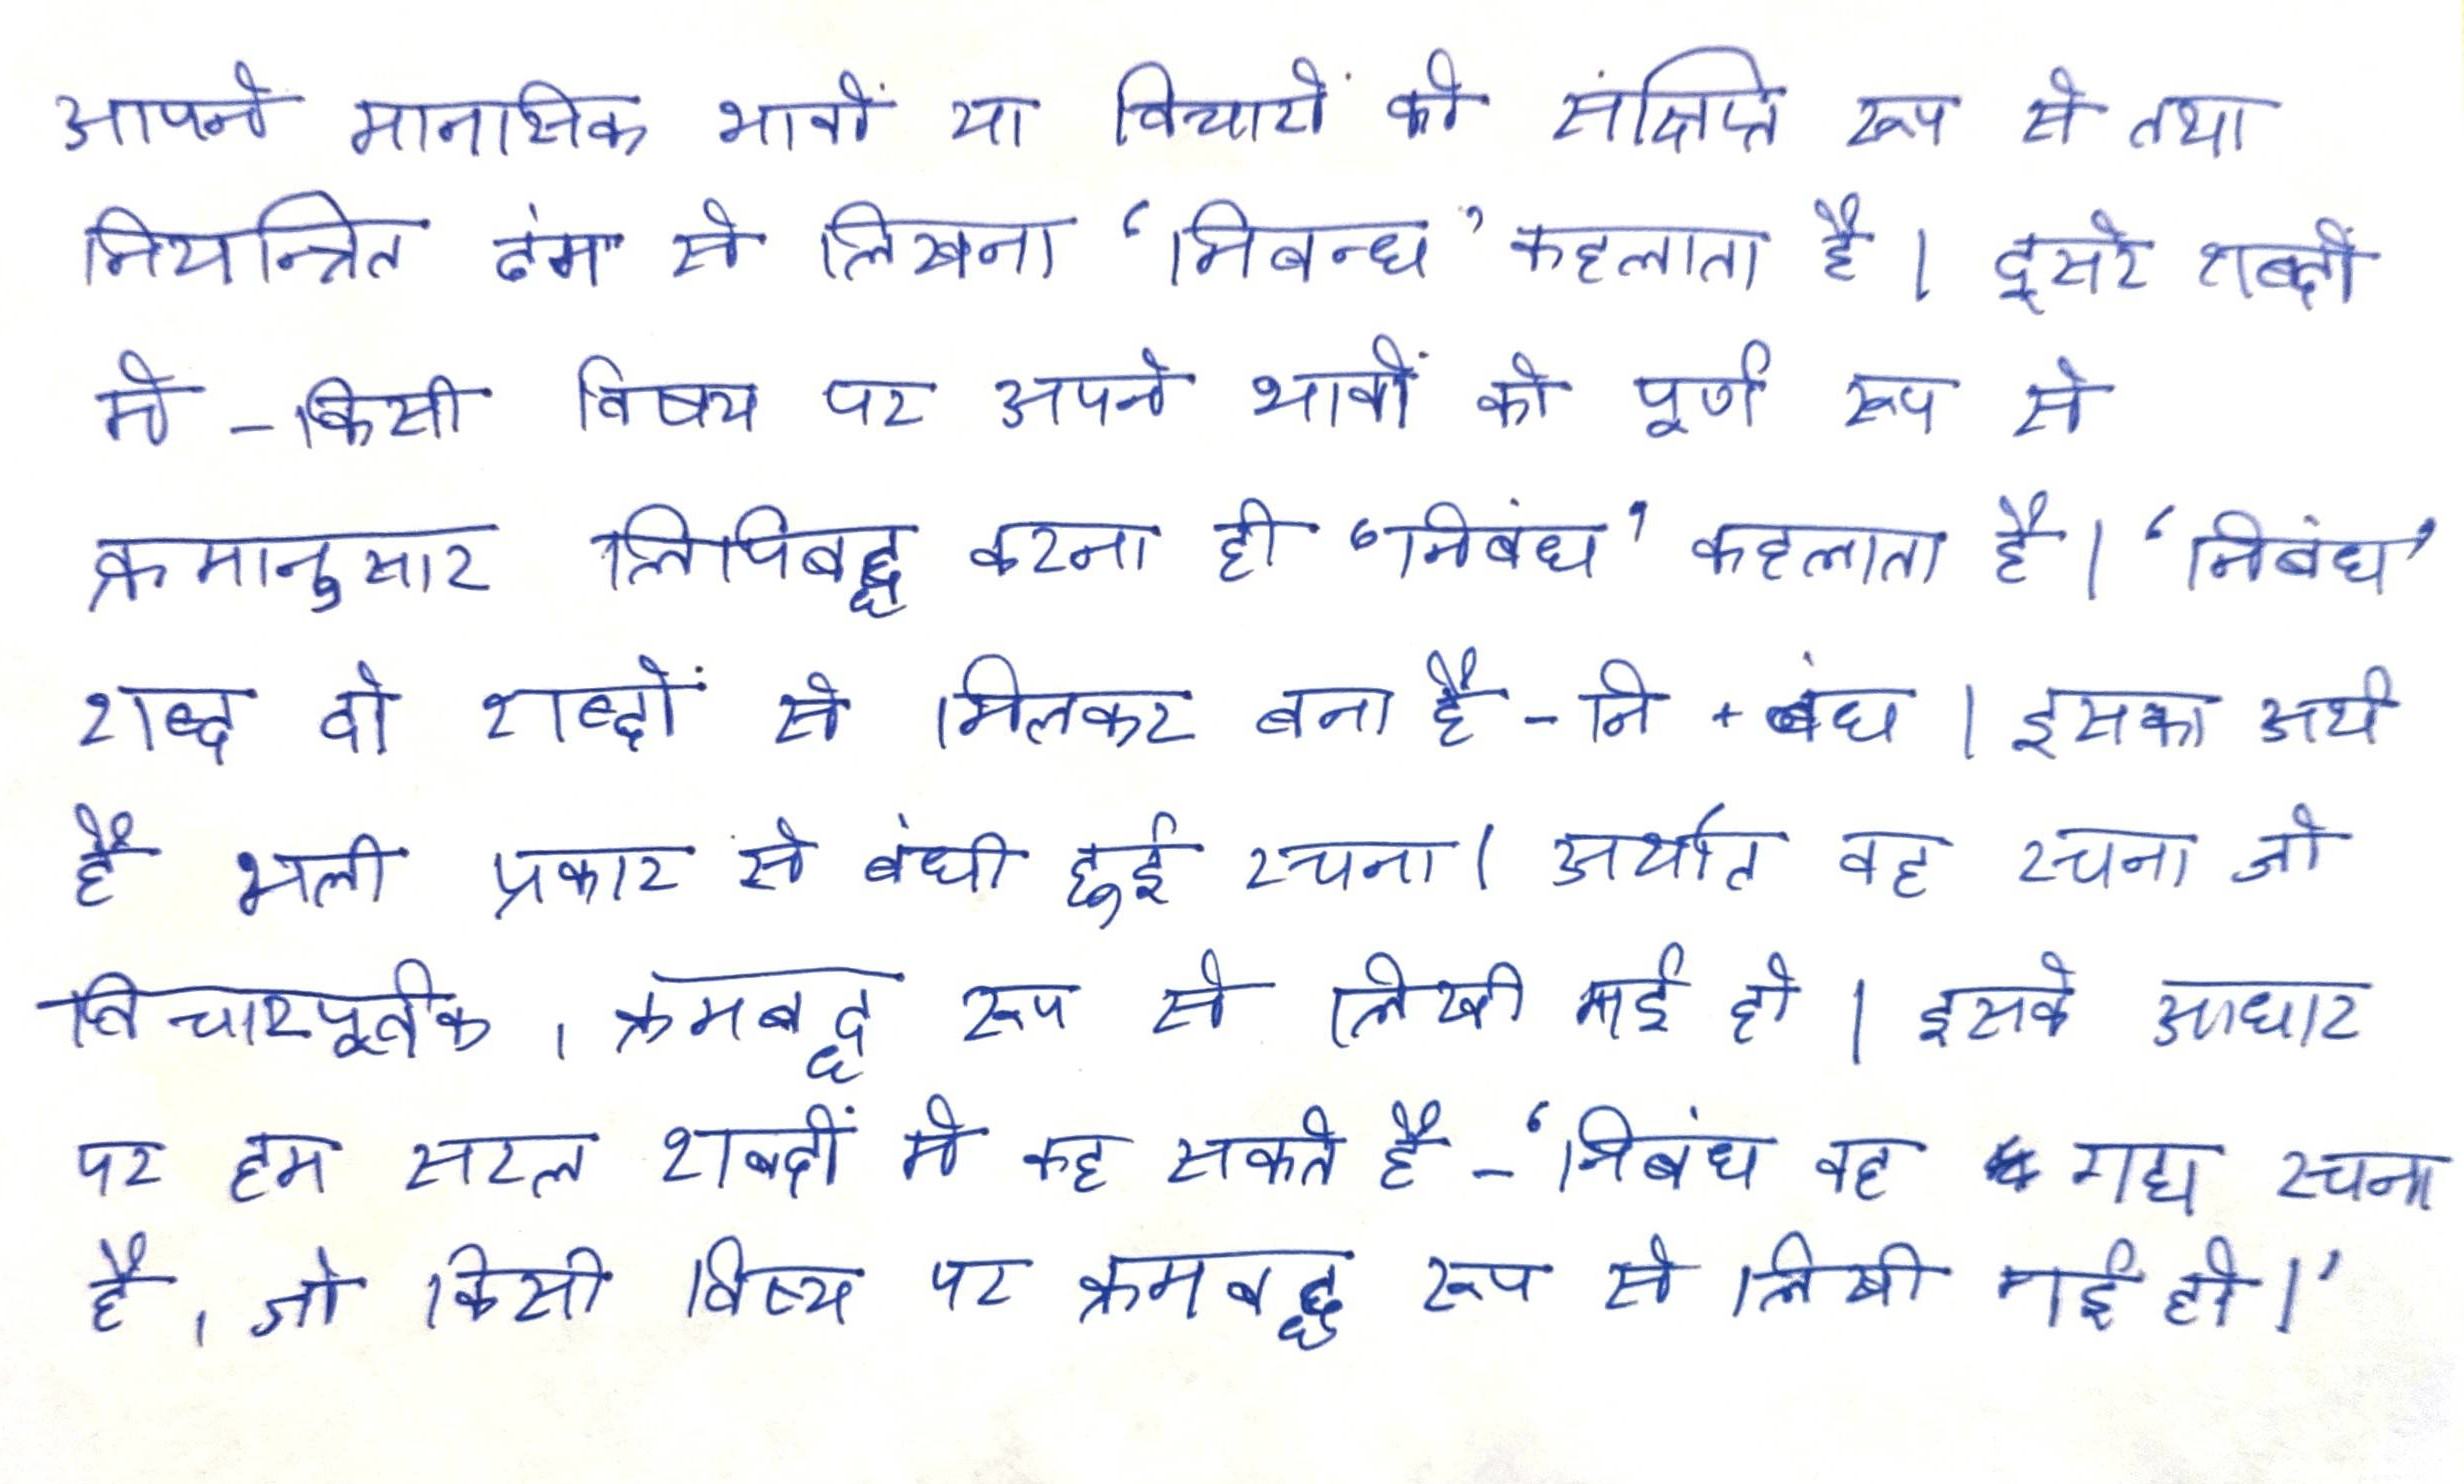 आपने मानसिक भावों या विचारों को संक्षिप्त रूप से तथा
नियन्त्रित ढंग से लिखना ‘निबन्ध’ कहलाता है। दूसरे शब्दों
में - किसी विषय पर अपने भावों को पूर्ण रूप से
क्रमानुसार लिपिबद्ध करना ही ‘निबंध’ कहलाता है। ‘निबंध’
शब्द दो शब्दों से मिलकर बना है - नि + बंध। इसका अर्थ
है भली प्रकार से बंधी हुई रचना। अर्थात वह रचना जो
विचारपूर्वक, क्रमबद्ध रूप से लिखी गई हो। इसके आधार
पर हम सरल शब्दों में कह सकते है - ‘निबंध वह गद्य रचना
है, जो किसी विषय पर क्रमबद्ध रूप से लिखी गई हो।’